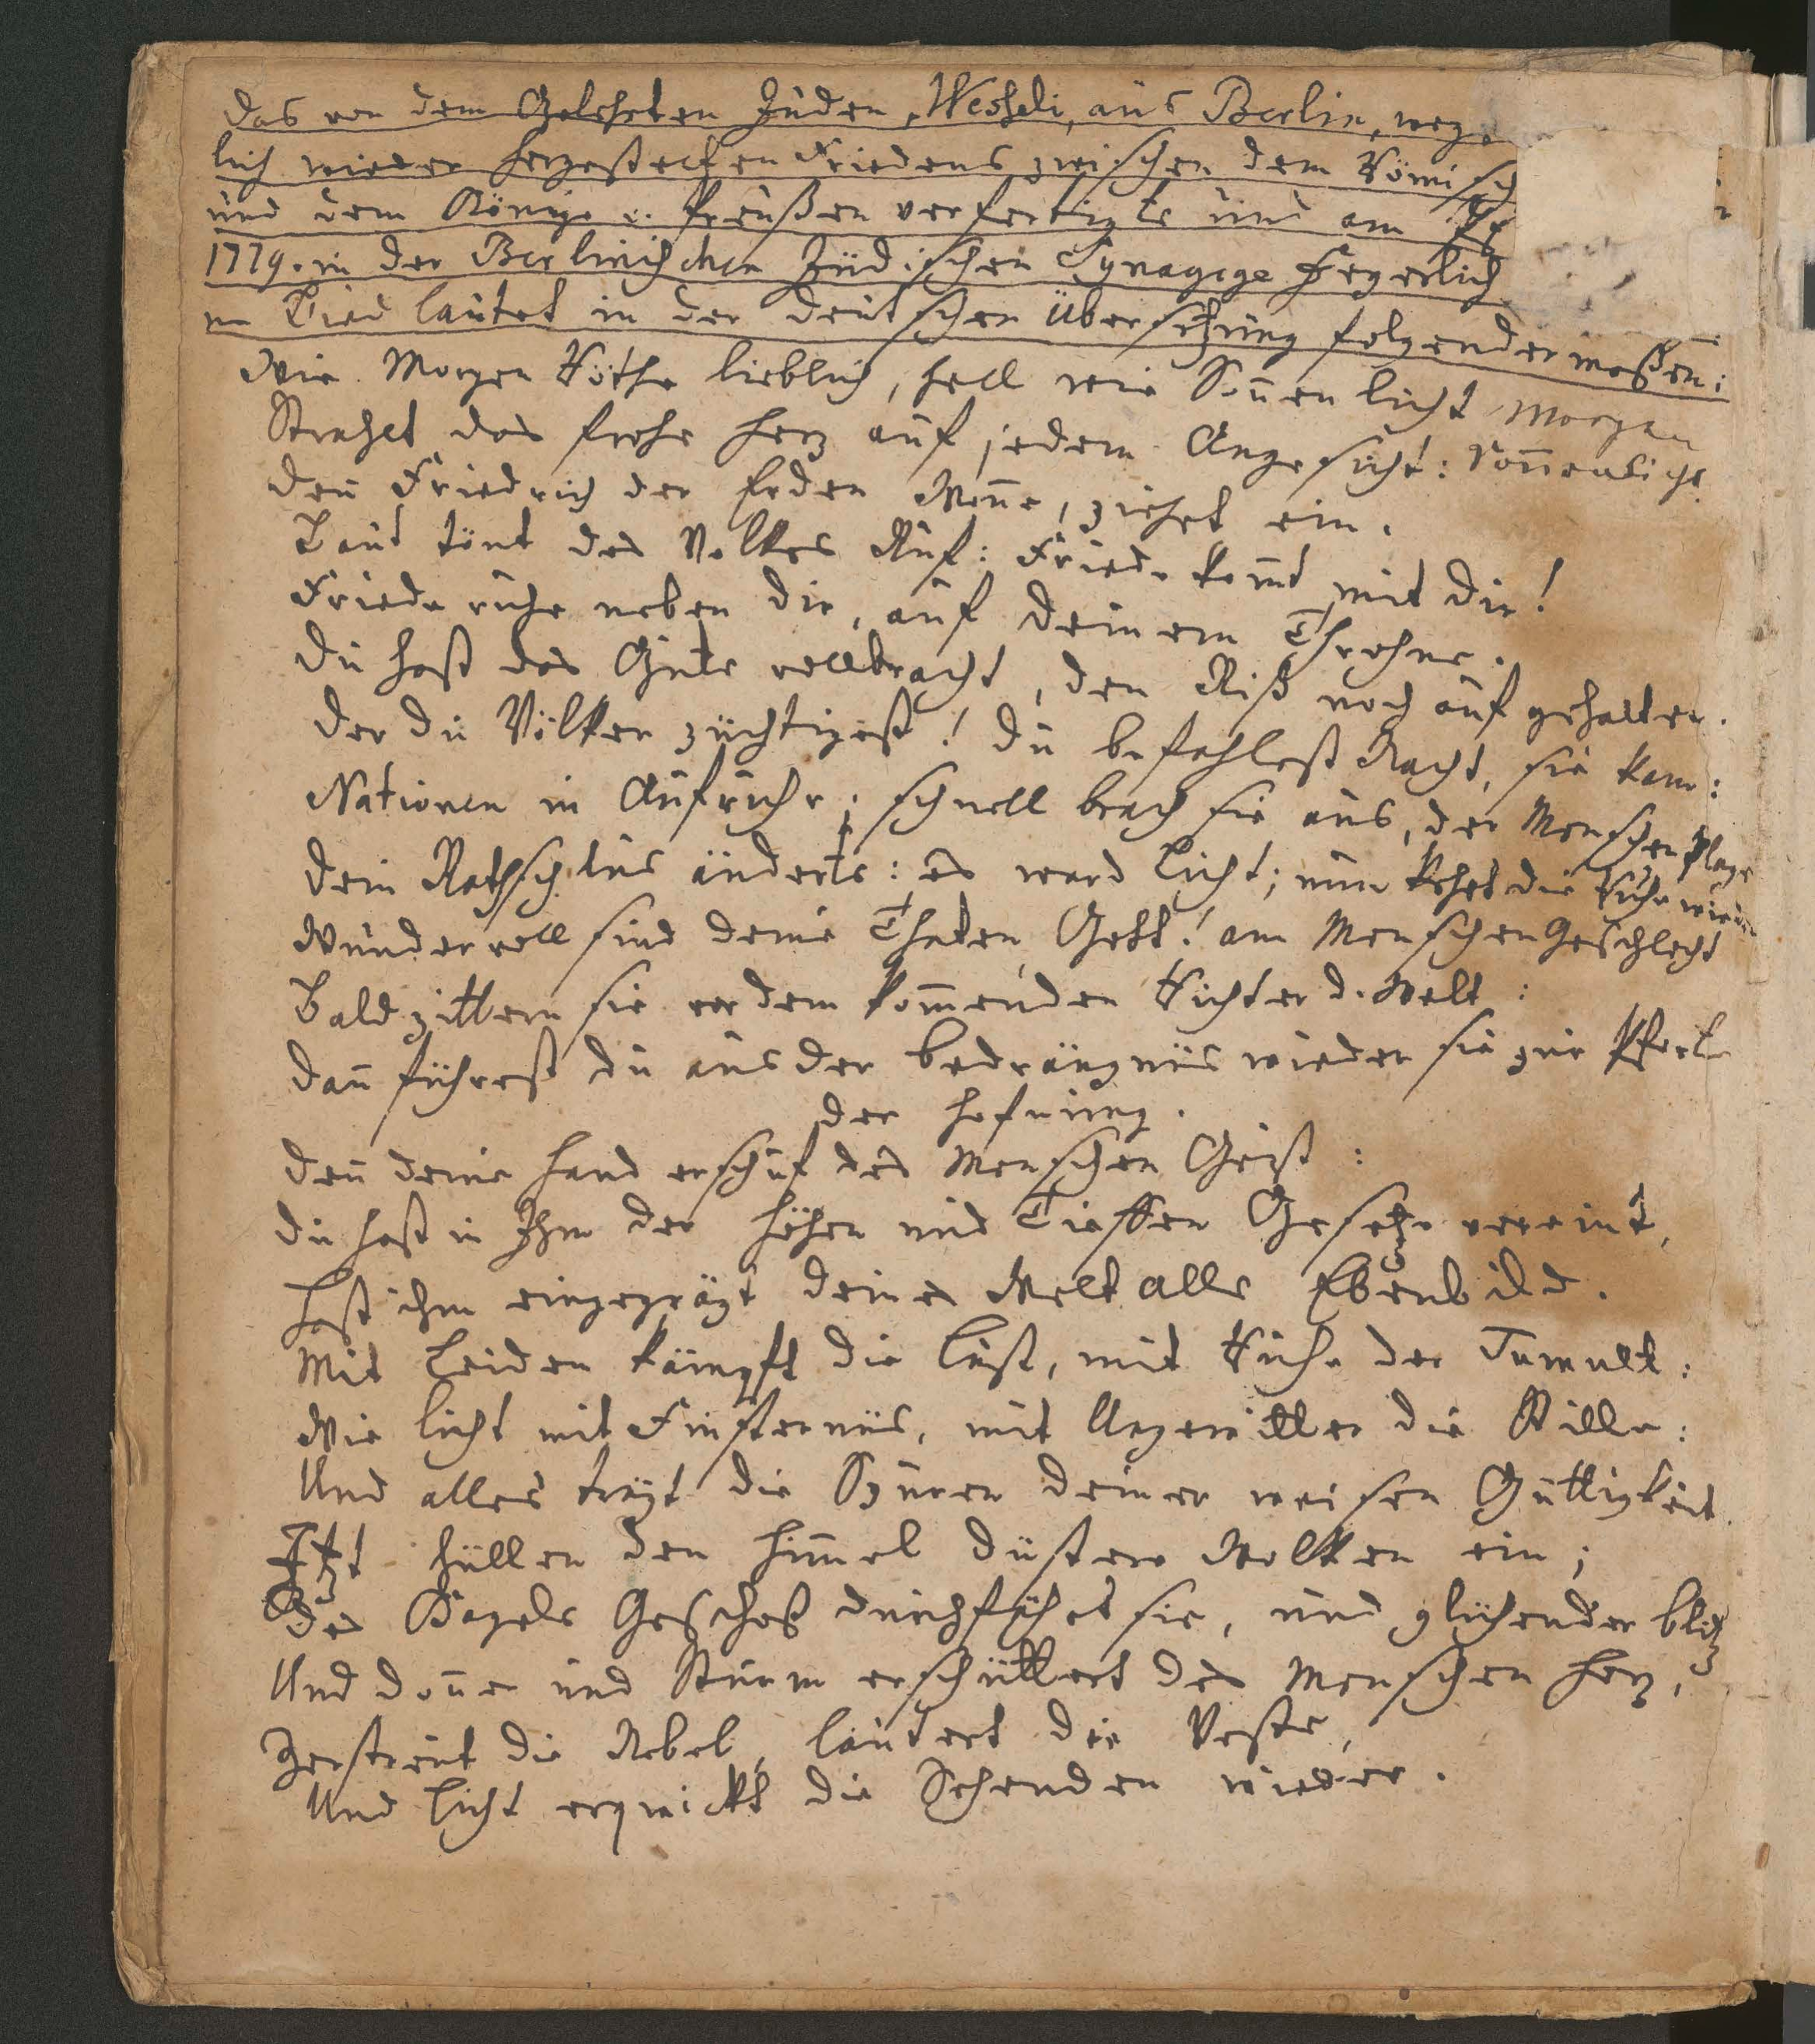 Das von dem Gelehrten Juden, Wessely, aus Berlin, weg
lich wieder hergestelten Friedens zwischen dem Römisch
und dem Könige v. Preußen verfertigte und am
1779. in der Berlinischen Jüdischen Synagoge feyerlich
Lied lautet in der deutschen Übersetzung folgendermaßen:
Wie Morgen Röthe lieblich, hell wie Soñen licht Morgen
Strahlet das frohe Herz auf jedem Angesicht: Soñenlicht
Deñ Friedrich der Erden Woñe, ziehet ein.
Laut tönt des Volkes Ruf: Friede kom̃t mit dir!
Friede ruhe neben dir, auf deinem Throhne.
Du hast das Gute vollbracht, den Riß noch auf gehalten.
Der du Völker züchtigest! Du befahlest Nacht, sie kam:
Nationen in Aufruhr; schnell brach sie aus, der Menschen Plage
Dein Rathschlus änderte: es ward Licht; nun kehrt die Ruhe wieder
Wundervoll sind deine Thaten, Gott! am Menschen Geschlecht
Bald zittern sie vor dem kom̃enden Richter d. Welt:
Dañ führest du aus der Bedrängnüs wieder sie zur Pforte
der Hofnung.
Deñ deine Hand erschuf des Menschen Geist:
Du hast in Ihm der Höhen und Tieffen Gesetze vereint,
Hast ihm eingeprägt deines Welt alls Ebenbild.
Mit Leiden kämpft die Lust, mit Ruhe der Tumult:
Wie Licht mit Finsternüs, mit Ungewitter die Stille:
Und alles trägt die Spuren deiner weisen Güttigkeit.
Itzt hüllen den Him̃el düstere Wolken ein;
Des Hagels Geschoß durchfährt sie, und glühender Blitz
Und Doñer und Sturm erschüttert des Menschen Herz,
Zerstreut die Nebel, läutert die Veste,
Und Licht erquickt die Sehenden wieder.